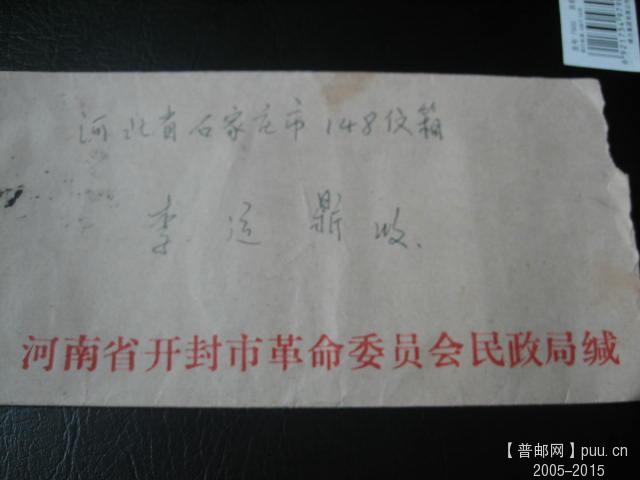 河北省石家庄市148仪箱
李运鼎收.
河南省开封市革命委员会民政局缄
【普邮网】puu.cn
2005-2015